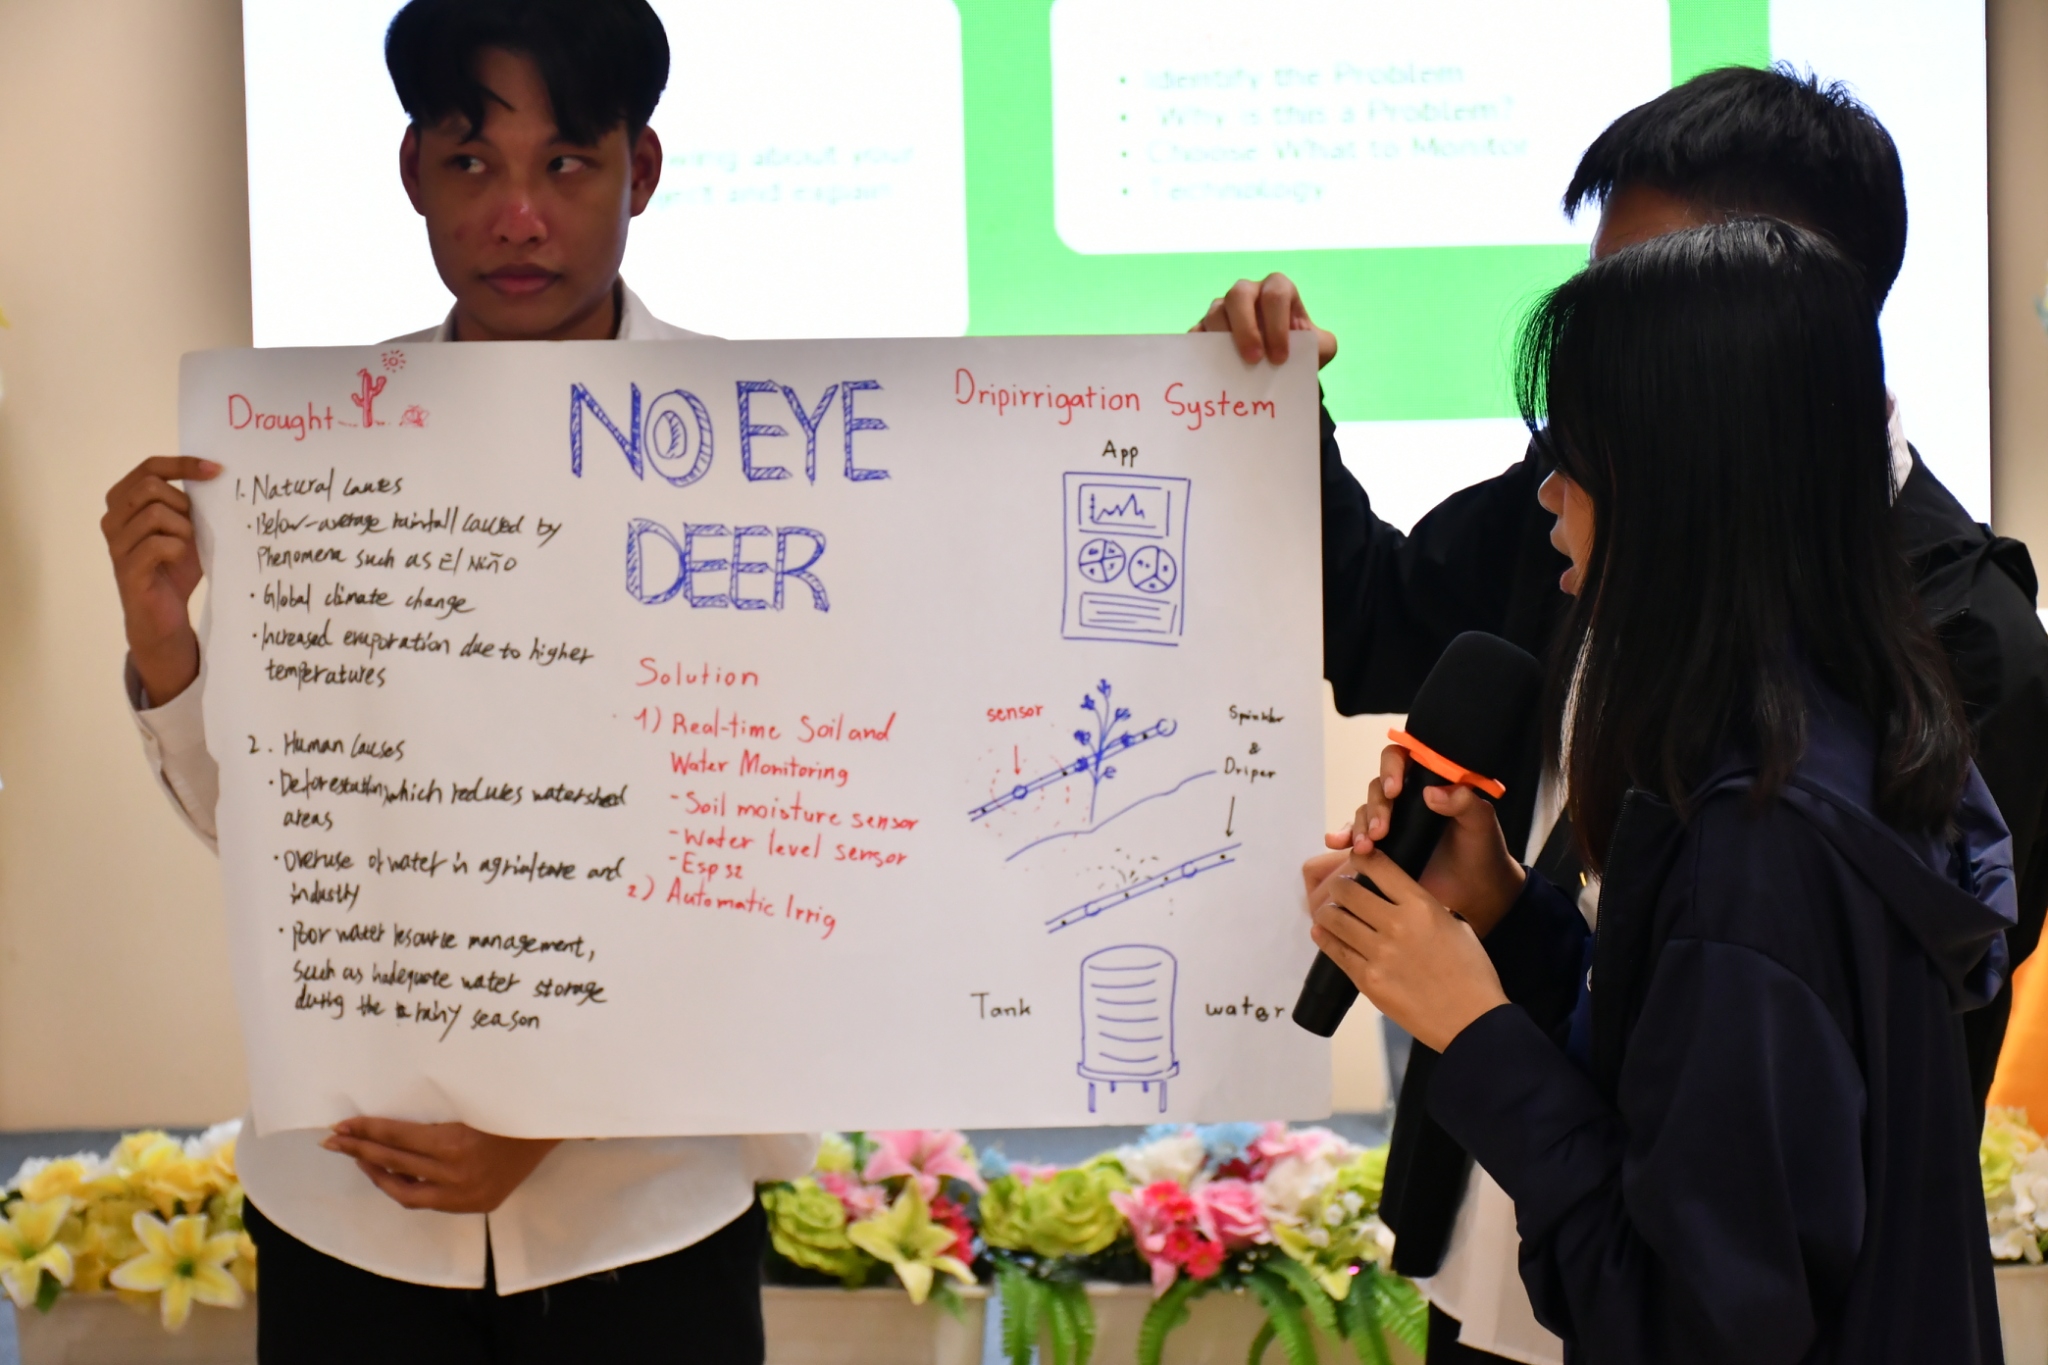 wing about your
and explain
• Identify the Problem
• Why is this a Problem?
• Choose What to Monitor
• Technology
Drought
1. Natural causes
• Below-average rainfall caused by
Phenomena such as El Niño
• Global climate change
• Increased evaporation due to higher
temperatures
2. Human Causes
• Deforestation, which reduces watershed
areas
• Overuse of water in agriculture and
industry
• Poor water resource management,
such as inadequate water storage
during the rainy season
NO EYE
DEER
Solution
1) Real-time Soil and
Water Monitoring
- Soil moisture sensor
- Water level sensor
- Esp 32
2) Automatic Irrig
Dripirrigation System
App
sensor
Sprinkler
&
Driper
Tank
water